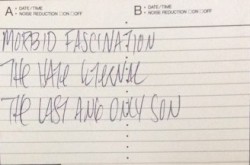 A • DATE/TIME
• NOISE REDUCTION □ON □OFF
B • DATE/TIME
• NOISE REDUCTION □ON □OFF
MORBID FASCINATION
THE VATE ETERNAL
THE LAST AND ONLY SON